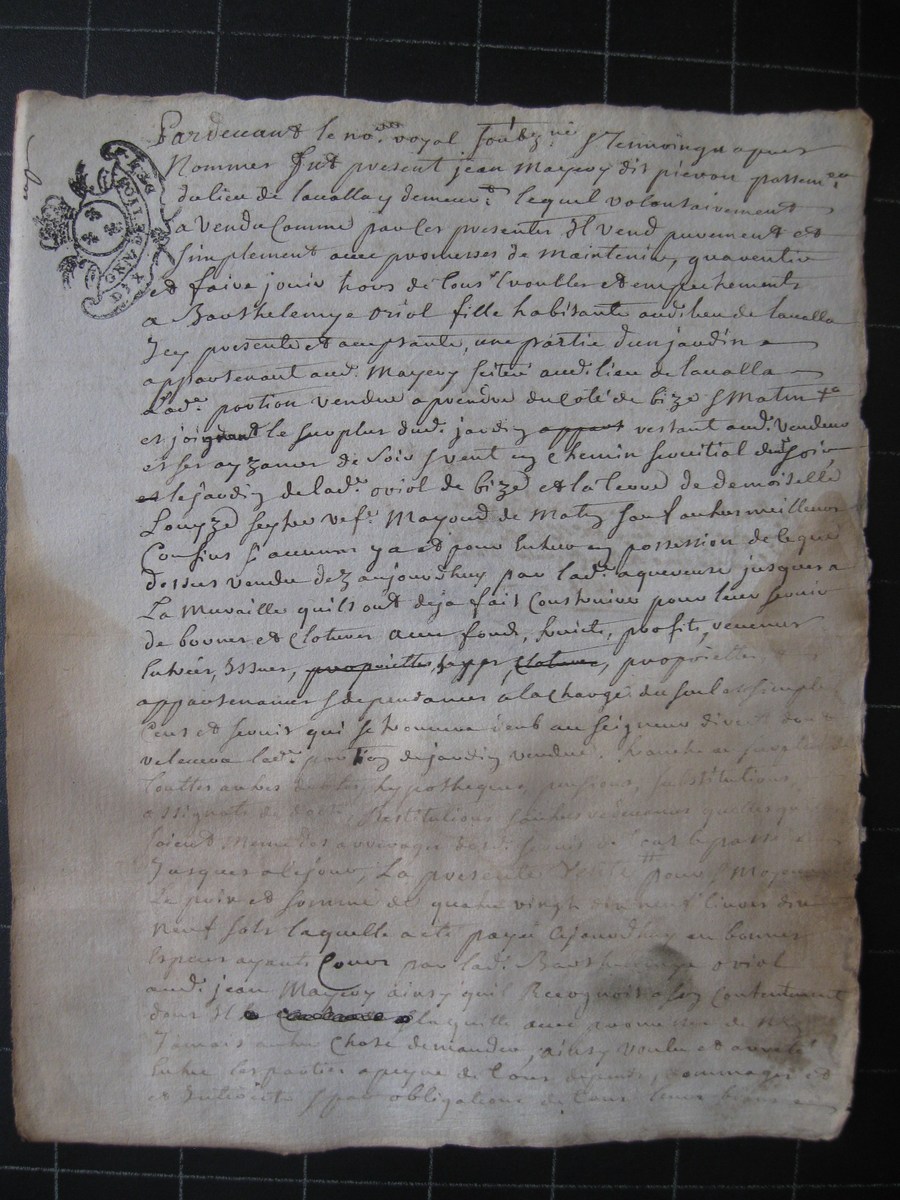 Pardevant le no.re royal soubz.né & Temoingz apres
Nommes fut present jean Mayery dit pievon passem.er
du lieu de lavallay demeur.t lequel volontairement
a vendu Comme par les presentes Il vend purement et
simplement avec promesses de maintenir, guarentir
et faire jouir hors de tous troubles et empechements
a Barthelemye oriol fille habitante audit lieu de lavalla
Icy presente et acceptante, une partie d'un jardin
appartenant aud. Mayery scitué aud. lieu de lavalla
Lad.e portion vendue a prendre du Coté de bize & Matin
et joignant le surplus dud. jardin appart restant aud. vendeur
et ses ayzances de soir & vent un Chemin servitial de soir
et le jardin de lad.e oriol de bize et la terre de demoiselle
Louyze seytre vef.e Mayoud de Matin sauf autres meilleurs
Confins sy aucuns y a et pour Entrer en possession de le que
dessus vendu dez aujourd'huy par lad.e aquereuse jusques a
La Muraille quils ont deja fait Construire pour leur servir
de bornes et Cloture avec fonds, fruits, profits, revenus
Entrées, Issues, proprietes, Clotures, proprietes,
appartenances & dependances a la Charge du seul et simple
Cens et servis qui se trouvera deub au seigneur direct dont
relevera lad.e portion de jardin vendue. franche au surplus de
touttes autres debtes, hypotheques, pensions, substitutions,
assignats de dotte, Restitutions & autres redevances quelles
soient Meme des arrerages desd. servis de cas le passé
Jusques a ce jour, La presente Vente pour & Moyennant
Le prix et somme de quatre vingt dix neuf livres dix
neuf sols laquelle a eté payée cejourd'huy en bonnes
Especes ayants Cours par lad. Barthelemye oriol
aud. jean Mayery ainsy quil Recognoit a son Contentement
dont Il la quitte avec promesse de n'en
Jamais autre Chose demander, ainsy voulu et arreté
Entre les parties a peyne de tous depends, dommages et
et Interets & par obligations de tous leurs biens